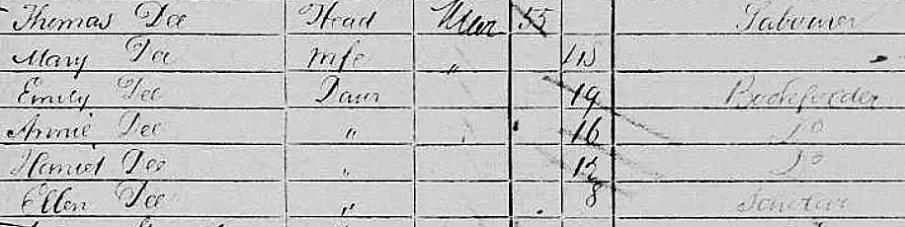 Thomas Dee Head Mar 55 Labourer
Mary Dee wife " 45
Emily Dee Daur 19 Bookfolder
Annie Dee " 16 Do
Harriet Dee " 13 Do
Ellen Dee " 8